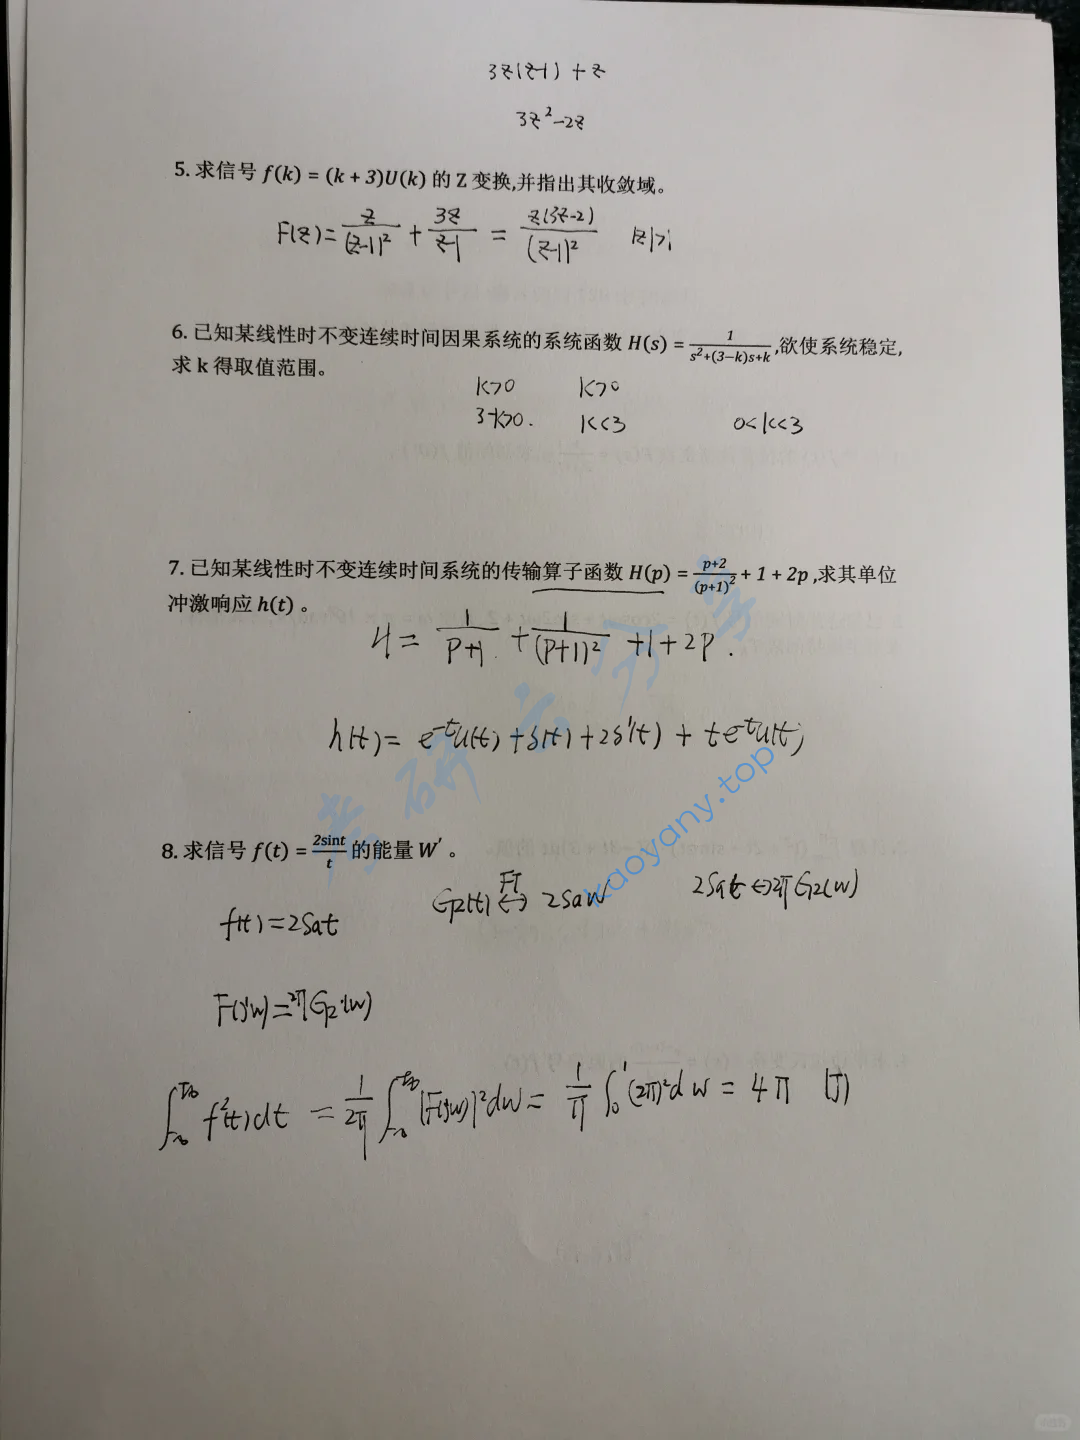 3z(z-1) + z
3z²-2z
5. 求信号 f(k) = (k + 3)U(k) 的 Z 变换,并指出其收敛域。
F(z)= z/(z-1)² + 3z/z-1 = z(3z-2)/(z-1)² |z|>1
6. 已知某线性时不变连续时间因果系统的系统函数 H(s) = 1/s²+(3-k)s+k ,欲使系统稳定,
求 k 得取值范围。
k>0 k>0
3-k>0. k<3 0<k<3
7. 已知某线性时不变连续时间系统的传输算子函数 H(p) = p+2/(p+1)² + 1 + 2p ,求其单位
冲激响应 h(t) 。
H = 1/p+1 + 1/(p+1)² +1+2p .
h(t)= e^-t u(t) +δ(t) +2δ'(t) + te^-t u(t)
考研云分享
kaoyany.top
8. 求信号 f(t) = 2sint/t 的能量 W′ 。
G₂(t) FT ↔ 2Saw 2Sat ↔2πG₂(w)
f(t)=2Sat
F(jw)=2πG₂(w)
∫_-∞^+∞ f²(t)dt = 1/2π ∫_-∞^+∞ |F(jw)|²dw = 1/π ∫₀¹ (2π)²dw = 4π (J)